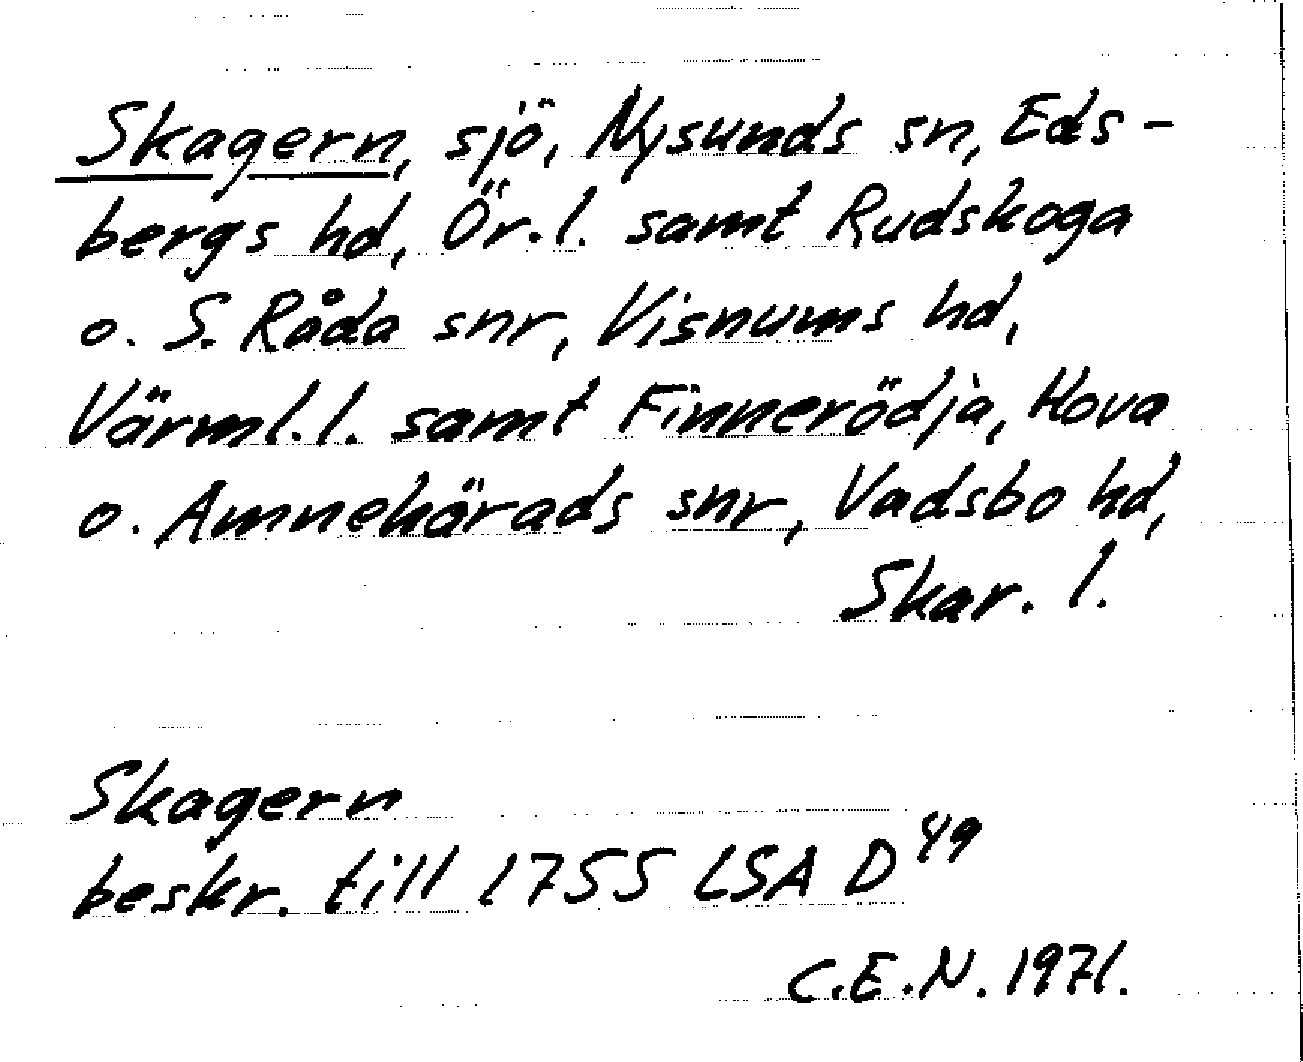 Skagern, sjö, Nysunds sn, Eds-
bergs hd, Ör.l. samt Rudskoga
o. S. Råda snr, Visnums hd,
Värml.l. samt Finnerödja, Hova
o. Amnehärads snr, Vadsbo hd,
Skar. l.
Skagern
beskr. till 1755 LSA D⁴⁹
C.E.N. 1971.